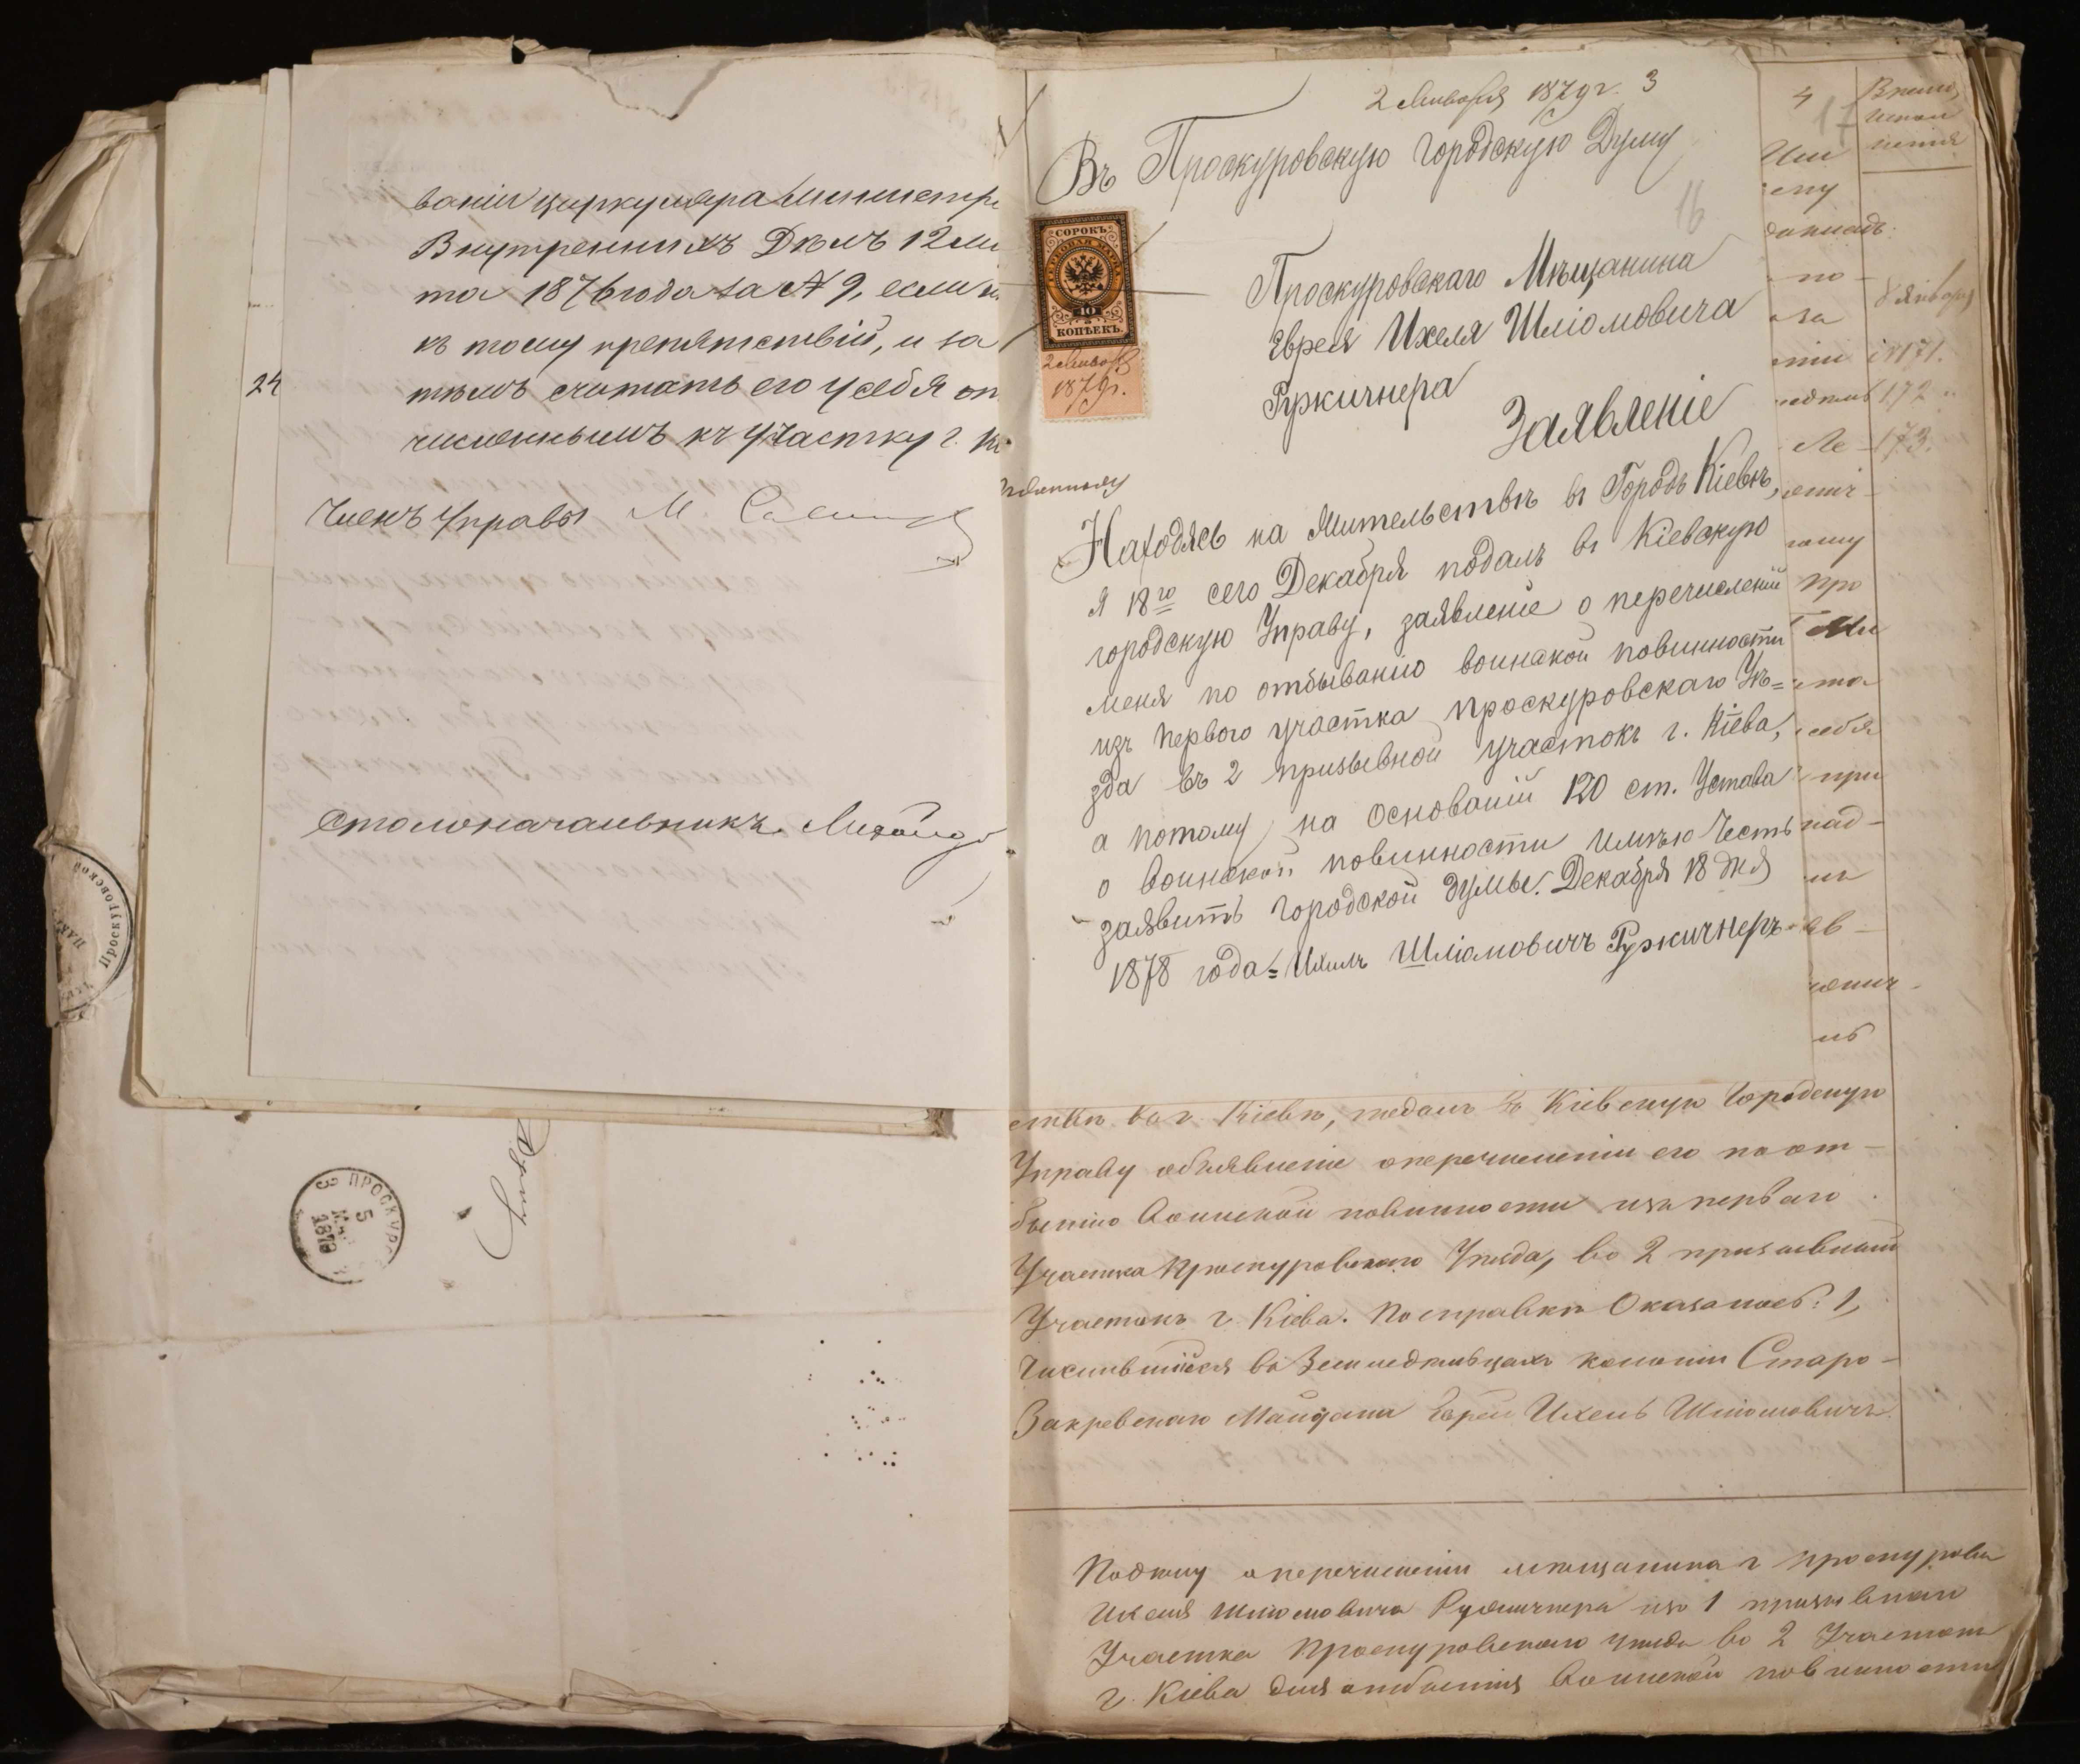 ваніи циркуляра Министре
Внутреннихъ Дѣлъ 12 ма
та 1876 года за № 9, если н
къ тому препятствій, и за
24
тѣмъ считать его у себя от
численнымъ къ участку г. Кі
Членъ Управы М.
Столоначальникъ
Проскуровской
ПРОСКУРОВ
5
1879
2 Января 1879 г. 3
Въ Проскуровскую Городскую Думу
16
СОРОКЪ
ГЕРБОВАЯ МАРКА
40
КОПѢЕКЪ.
2 Января
1879 г.
Проскуровскаго Мѣщанина
Еврея Ихеля Шліомовича
Ружичнера
Заявленіе
Находясь на Жительствѣ въ Городѣ Кіевѣ,
я 18го сего Декабря подалъ въ Кіевскую
городскую Управу, заявленіе о перечисленіи
меня по отбыванію воинской повинности
изъ перваго участка проскуровскаго Уѣ=
зда въ 2 призывной участокъ г. Кіева,
а потому на основаніи 120 ст. Устава
о воинской повинности имѣю Честь
заявить городской думѣ. Декабря 18 дня
1878 года = Ихиль Шліомовичъ Ружичнеръ
4
17
Время
исполненія
докладъ
по
за
8 Января
171.
172
173.
про
себя
при
над-
ствѣ въ г. Кіевѣ, подалъ въ Кіевскую Городскую
Управу объявленіе о перечисленіи его по от-
бытію воинской повинности изъ перваго
Участка Проскуровскаго Уѣзда, во 2 призывный
Участокъ г. Кіева. По справкѣ Оказалось: 1,
Числившійся въ Земледѣльцахъ колоніи Старо-
Закревскаго Майдана Еврей Ихель Шліомовичъ
По дѣлу о перечисленіи мѣщанина г. Проскурова
Ихеля Шліомовича Ружичнера изъ 1 призывнаго
Участка Проскуровскаго уѣзда во 2 Участокъ
г. Кіева для отбытія воинской повинности